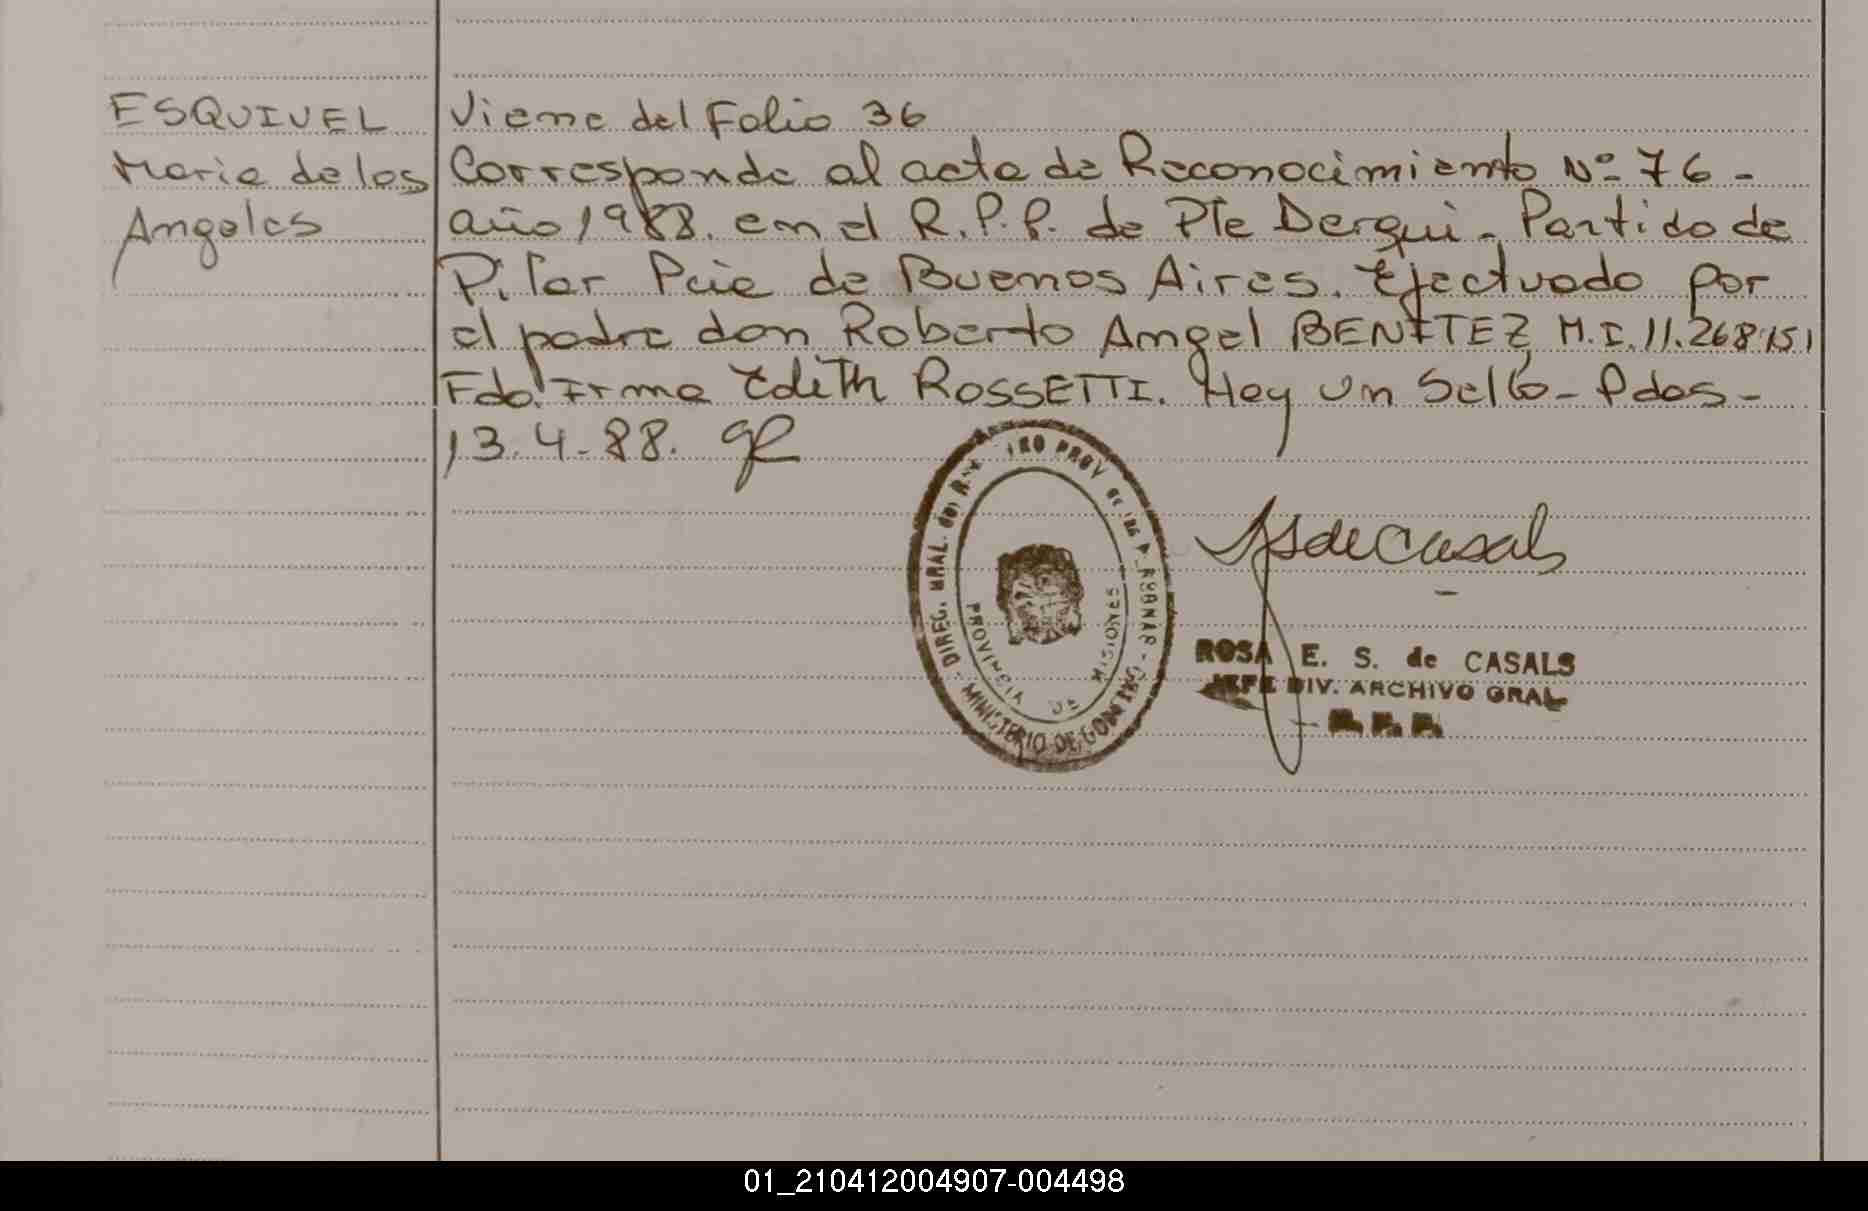 ESQUIVEL
Maria de los
Angeles
Viene del Folio 36
Corresponde al acta de Reconocimiento Nº 76 -
año 1988. en el R.P.P. de Pte Derqui - Partido de
Pilar Pcia de Buenos Aires. Efectuado por
el padre don Roberto Angel BENITEZ M.I. 11.268.151
Fdo. Irma Edith ROSSETTI. Hay un Sello - Pdas -
13.4-88.
DIREC. GRAL. del REGISTRO PROV de las PERSONAS - MINISTERIO DE GOBIERNO
PROVINCIA DE MISIONES
S de Casals
ROSA E. S. de CASALS
JEFE DIV. ARCHIVO GRAL
R. P. P.
01_210412004907-004498